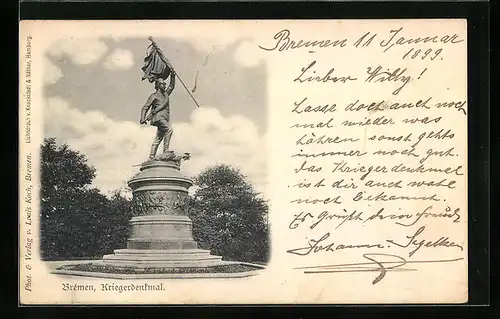 Phot. & Verlag v. Louis Koch, Bremen. Lichtdruck v. Knackstedt & Näther, Hamburg.
Bremen, Kriegerdenkmal.
Bremen 11 Januar
1899.
Lieber Willy!
Lasse doch auch noch
mal wieder was
hören sonst gehts
immer noch gut.
das Kriegerdenkmal
ist dir auch wohl
noch bekannt.
Es Grüßt dein Freund
Johann